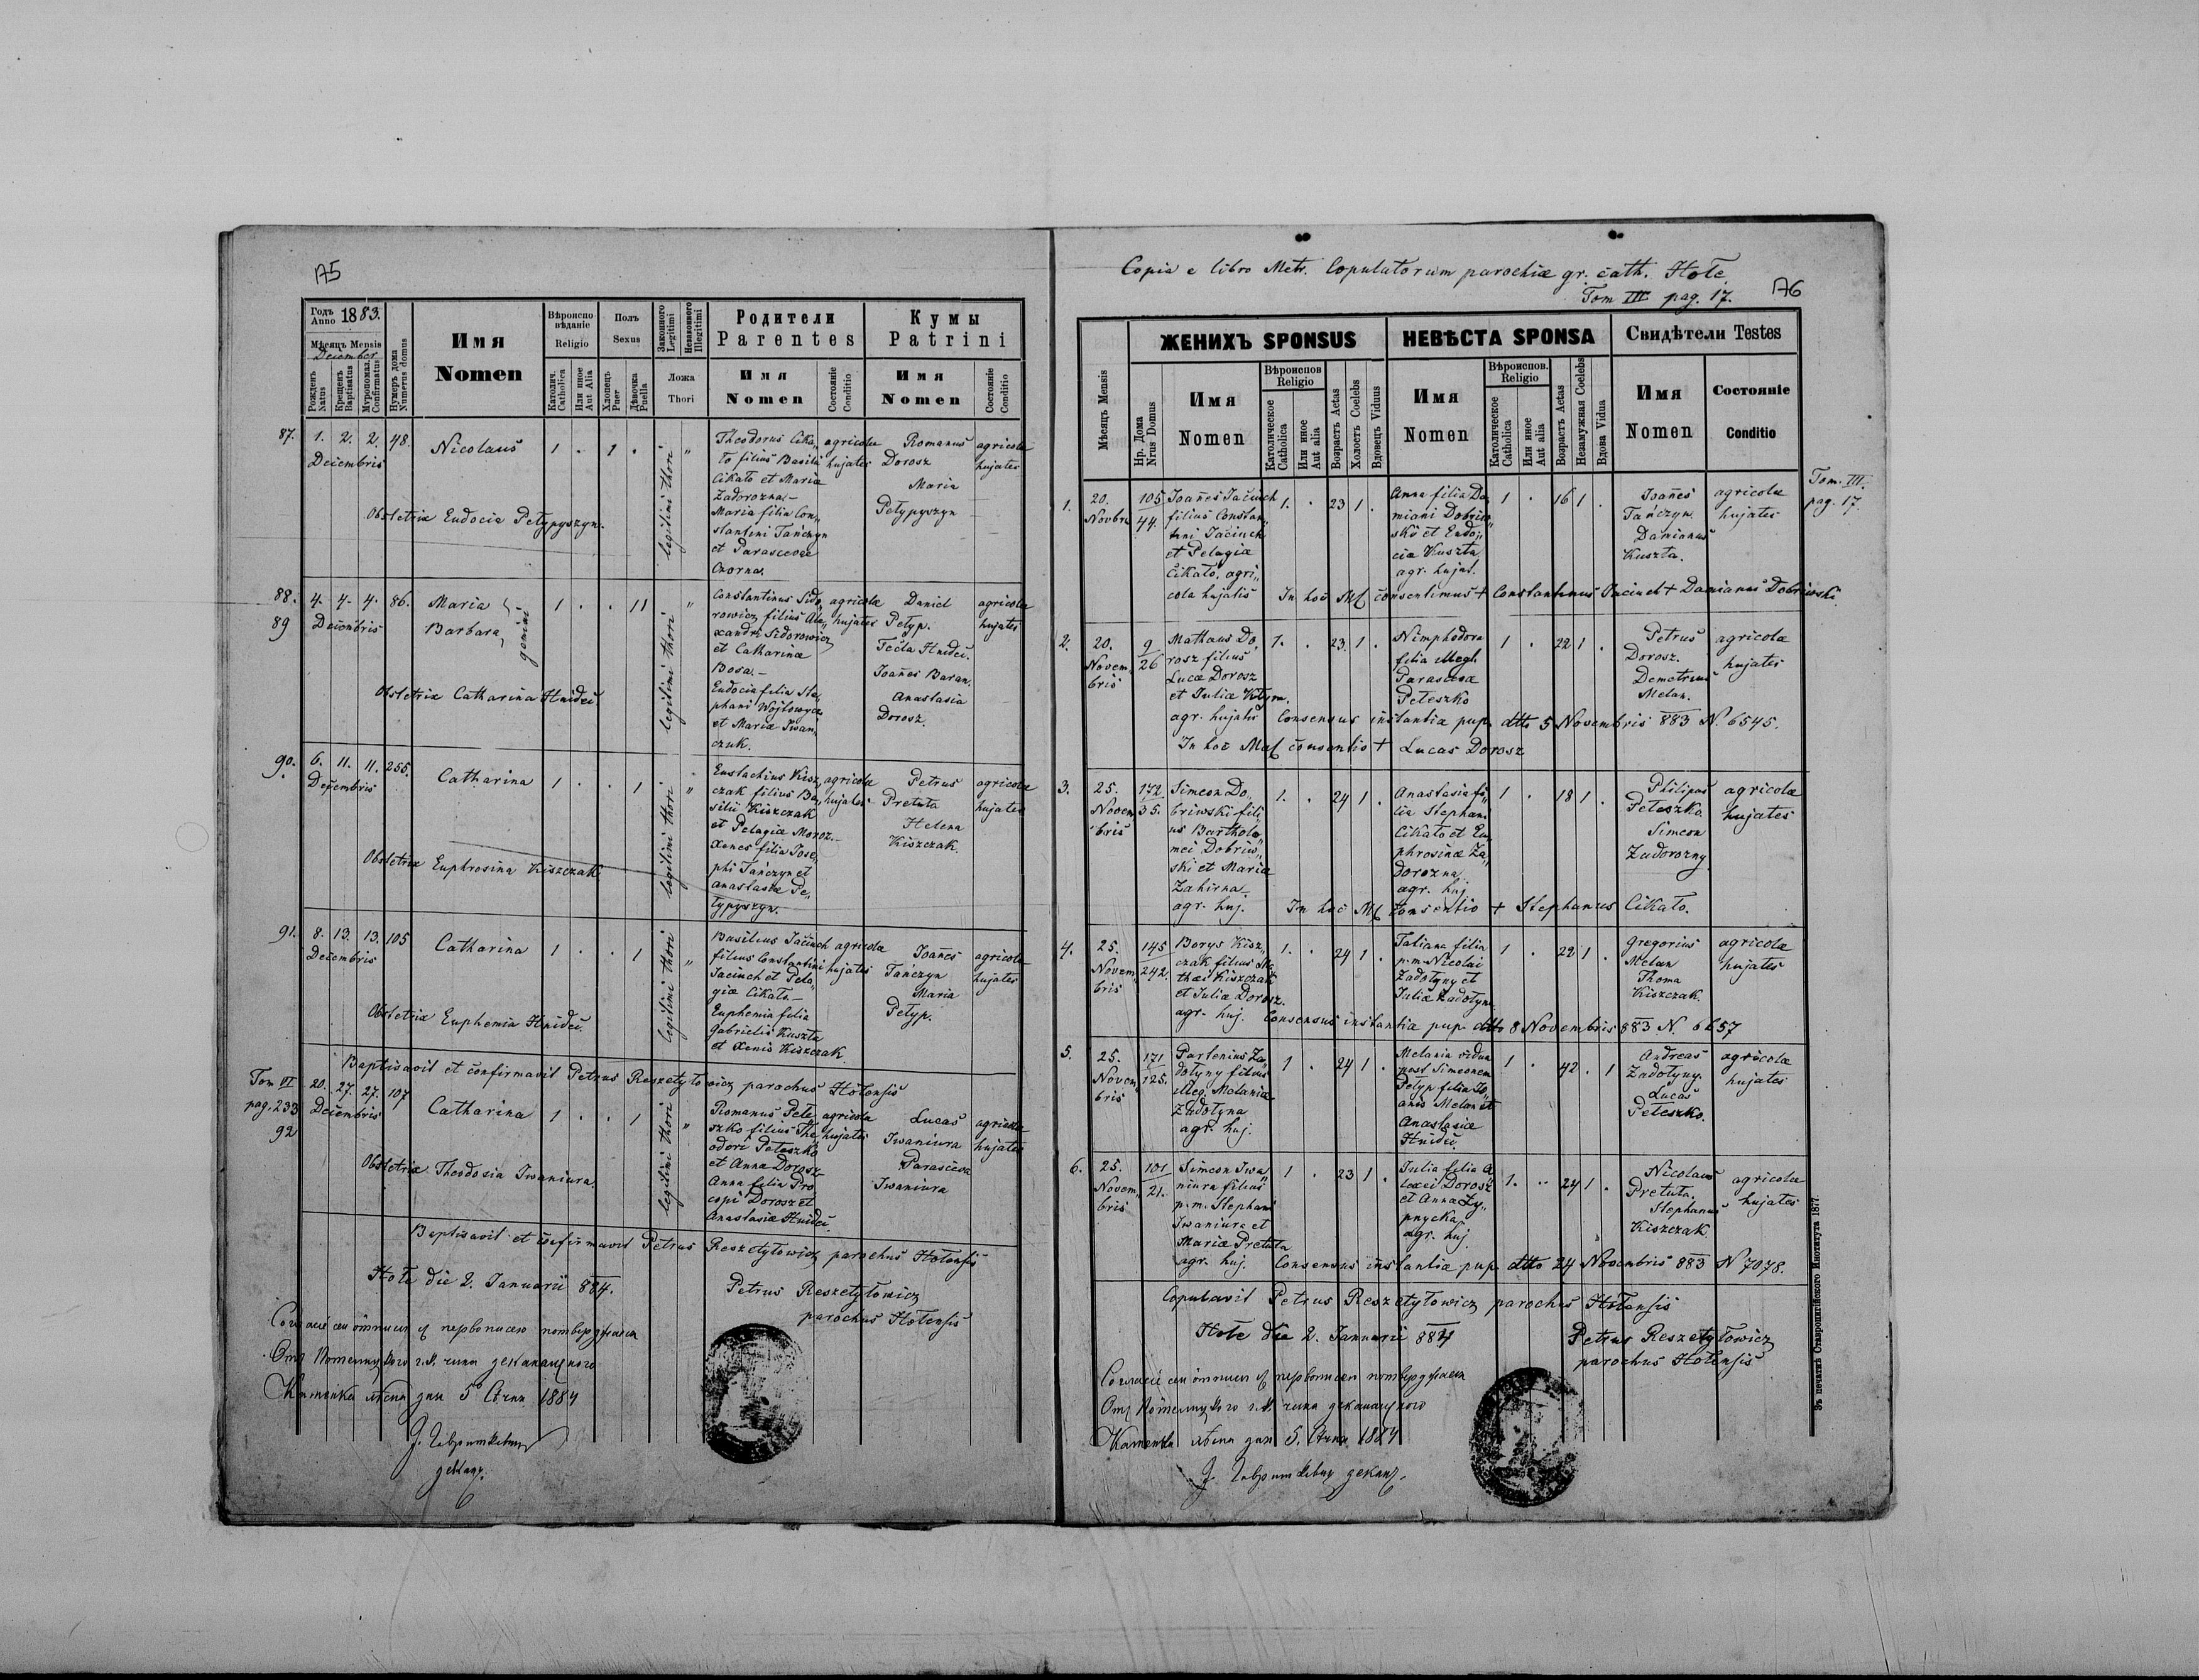 175
Годъ Anno 1883.
Мѣсяцъ Mensis
December
Рожденъ Natus
Крещенъ Baptisatus
Муропомаз. Confirmatus
Нумеръ дома Numerus domus
Имя
Nomen
Вѣроисповѣданіе
Religio
Католич. Catholica
Или иное Aut Alia
Полъ
Sexus
Хлопець Puer
Дѣвочка Puella
Законного Legitimi
Незаконного Illegitimi
Ложа
Thori
Родители
Parentes
Имя
Nomen
Состояніе Conditio
Кумы
Patrini
Имя
Nomen
Состояніе Conditio
87. 1. 2. 2. 48. Nicolaus 1 . 1 .
Decembris
legitimi thori "
Theodorus Cika„
to filius Basilii
Cikato et Maria
Zadorozna.—
Maria filia Con„
stantini Tańczyn
et Parascevae
Czorna.
agricolae
hujates
Romanus
Dorosz
Maria
Petypyszyn
agricolae
hujates
Obstetrix Eudocia Petypyszyn.
88. 4. 4. 4. 86. Maria 1 . . 11
89 Decembris Barbara gemini
legitimi thori "
Constantinus Sido„
rowicz filius Ale„
xandri Sidorowicz
et Catharinae
Bosa.—
Eudocia filia Ste„
phani Wojtowycz
et Mariae Iwan„
czuk.
agricolae
hujates
Daniel
Petyp.
Tecla Hnidec.
Ioannes Baran.
Anastasia
Dorosz.
agricolae
hujates
Obstetrix Catharina Hnidec.
90. 6. 11. 11. 255. Catharina 1 . . 1
Decembris
legitimi thori "
Eustachius Kisz„
czak filius Ba„
silii Kiszczak
et Pelagiae Moroz.—
Xenes filia Iose„
phi Tańczyn et
Anastasiae Pe„
typyszyn.
agricolae
hujates
Petrus
Pretuta
Helena
Kiszczak.
agricolae
hujates
Obstetrix Euphrosina Kiszczak.
91. 8. 13. 13. 105 Catharina 1 . . 1
Decembris
legitimi thori "
Basilius Jacinch
filius Constantini
Jacinch et Pela„
giae Cikato.—
Euphemia filia
Gabrielis Kuszta
et Xenis Kiszczak.
agricolae
hujates
Ioannes
Tańczyn
Maria
Petyp.
agricolae
hujates
Obstetrix Euphemia Hnidec.
Baptisavit et confirmavit Petrus Reszetyłowicz parochus Hołensis
Tom VI
pag. 233
92
20. 27. 27. 107 Catharina 1 . . 1
Decembris
legitimi thori "
Romanus Pete„
szko filius The„
odori Peteszko
et Anna Dorosz
Anna filia Pro
copi Dorosz et
Anastasiae Hnidec.
agricola
hujates
Lucas
Iwaniura
Parasceva
Iwaniura
agricolae
hujates
Obstetrix Theodosia Iwaniura.
Baptisavit et confirmavit Petrus Reszetyłowicz parochus Hołensis
Hołe die 2. Ianuarii 884.
Petrus Reszetyłowicz
parochus Hołensis
Каменка дня 5 1884
декан.
Copia e libro Metr. Copulatorum parochiae gr. cath. Hołe
Tom III. pag. 17.
176
Мѣсяцъ Mensis
Нр. Дома Nrus Domus
ЖЕНИХЪ SPONSUS
Имя
Nomen
Вѣроиспов Religio
Католическое Catholica
Или иное Aut alia
Возрастъ Aetas
Холостъ Coelebs
Вдовецъ Viduus
НЕВѢСТА SPONSA
Имя
Nomen
Вѣроиспов. Religio
Католическое Catholica
Или иное Aut alia
Возрастъ Aetas
Незамужная Coelebs
Вдова Vidua
Свидѣтели Testes
Имя
Nomen
Состояніе
Conditio
Tom. III.
pag. 17.
1. 20. Novbris 105/44.
Ioannes Jacinch
filius Constan„
tini Jacinch
et Pelagiae
Cikato, agri„
cola hujatis
1. . 23 1 .
Anna filia Da„
miani Dobriw„
ski et Eudo„
ciae Kuszta
agr. hujat.
1 . 16 1 .
Ioannes
Tańczyn.
Damianus
Kuszta.
agricolae
hujates
In hoc Mt consentimus + Constantinus Jacinch + Damianus Dobriwski.
2. 20. Novembris 9/26
Mathaeus Do„
rosz filius
Lucae Dorosz
et Iuliae Kłym.
agr. hujatis
1. . 23. 1 .
Nimphodora
filia illegl.
Parascevae
Peteszko
1 . 22 1 .
Petrus
Dorosz.
Demetrius
Melan.
agricolae
hujates
Consensus instantiae pup. dtto 5 Novembris 883 N. 6545.
In hoc Mat consentio + Lucas Dorosz
3. 25. Novembris 172/35.
Simeon Do„
briwski fili„
us Bartholo„
mei Dobriw„
ski et Mariae
Zahirna
agr. huj.
1. . 24 1 .
Anastasia fi„
lia Stephani
Cikato et Eu„
phrosinae Za„
dorozna
agr. huj.
1 . 18 1 .
Philipus
Peteszko.
Simeon
Zadorozny
agricolae
hujates
In hoc Mt consentio + Stephanus Cikato.
4. 25. Novembris 145/242.
Borys Kisz„
czak filius Ma„
thaei Kiszczak
et Iuliae Dorosz.
agr. huj.
1. . 24 1 .
Tatiana filia
p.m. Nicolai
Zadotyny et
Iuliae Zadotyna
1 . 22 1 .
Gregorius
Melan
Thoma
Kiszczak.
agricolae
hujates
Consensus instantiae pup. dtto 8 Novembris 883 N. 6657
5. 25. Novembris 171/125.
Partenius Za„
dotyny filius
illeg. Melaniae
Zadotyna
agr. huj.
1 . 24 1 .
Melania vidua
post Simeonem
Petyp filia Io„
anis Melan et
Anastasiae
Hnidec.
1 . 42 . 1
Andreas
Zadotyny.
Lucas
Peteszko.
agricolae
hujates
6. 25. Novembris 101/21.
Simeon Iwa„
niura filius
p.m. Stephani
Iwaniura et
Mariae Pretuta
agr. huj.
1 . 23 1 .
Iulia filia A„
lexei Dorosz
et Annae Ly„
pnycka
agr. huj.
1. . 24 1 .
Nicolaus
Pretuta.
Stephanus
Kiszczak
agricolae
hujates
Consensus instantiae pup. dtto 24 Novembris 883 N 7078.
Copulavit Petrus Reszetyłowicz parochus Hołensis
Hołe die 2. Ianuarii 884
Petrus Reszetyłowicz
parochus Hołensis
Каменка дня 5. 1884
декан.
Въ печатнѣ Ставропигійского Института 1877.